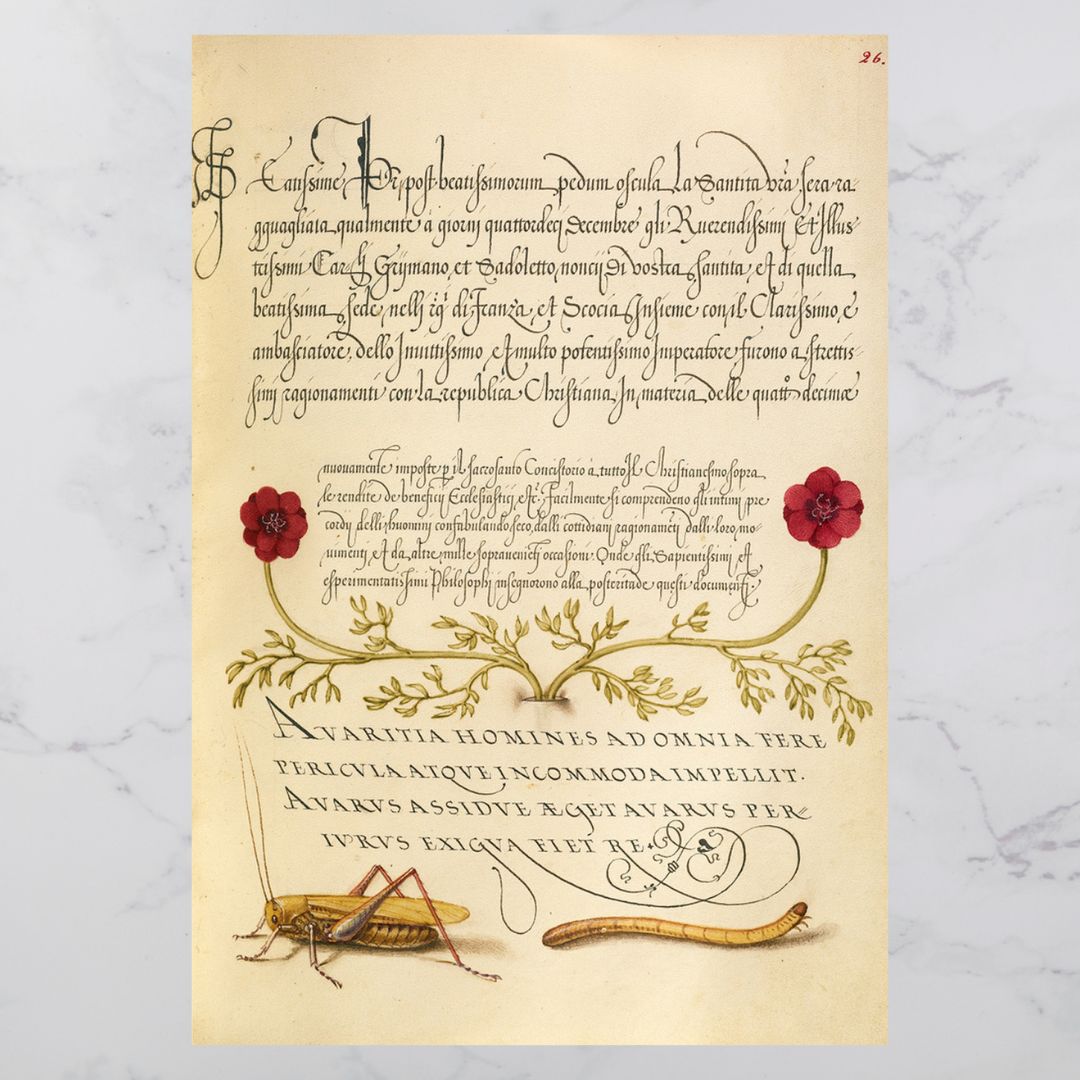 26.
Beatissime Pr̃, post beatissimorum pedum oscula La Santita vr̃a sera ra
gguagliata qualmente à giorni quattordeci Decembre gli Ruerendissimi Et Illus-
trissimi Car.li Grijmano, et Sadoletto, noncij Di vostra santita, et di quella
beatissima sede, nelli di Franza, et Scocia Insieme con il Clarissimo, e
ambasciatore, dello Invittissimo, et multo potentissimo Imperatore furono a strettis-
simi ragionamenti con La republica Christiana, In materia delle quatt.o decime
nuouamente imposte p il sacrosanto Concistorio à tutto Il Christianesmo sopra
le rendite de beneficij Ecclesiastici, etc. Facilmente si comprendeno gli intimi pre
cordij delli huomini confabulando seco, dalli cottidiani ragionameti dalli loro mo-
uimenti, et da altre mille soprauenieti occasioni. Onde gli Sapientissimi, et
esperimentatissimi Philosophi insegnorono alla posteritade questi documenti.
AVARITIA HOMINES AD OMNIA FERE
PERICVLA ATQVE INCOMMODA IMPELLIT.
AVARVS ASSIDVE ÆGET AVARVS PER-
IVRVS EXIGVA FIET RE.